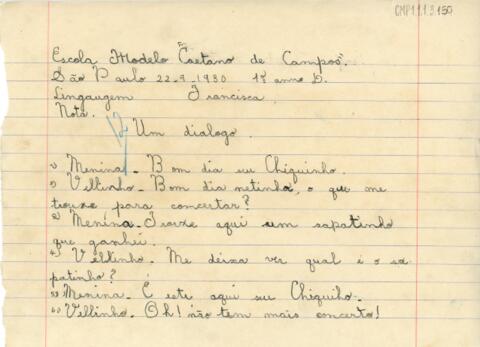 CMP1.1.1.3.150
Escola Modelo "Caetano de Campos".
São Paulo 22-9-1930 1º anno D.
Lingaugem Francisca.
Nota.
12
Um dialogo.
1) Menina_ Bom dia seu Chiquinho.
2) Velltinho_ Bom dia netinha, o que me
trouxe para concertar?
3) Menina_ Troixe aqui um sapatinho
que ganhei.
4) Veltinho_ Me deixa ver qual é o sa
patinho?
5) Menina_ É este aqui seu Chiquiho.
6) Vellinho_ Oh! não tem mais concerto!